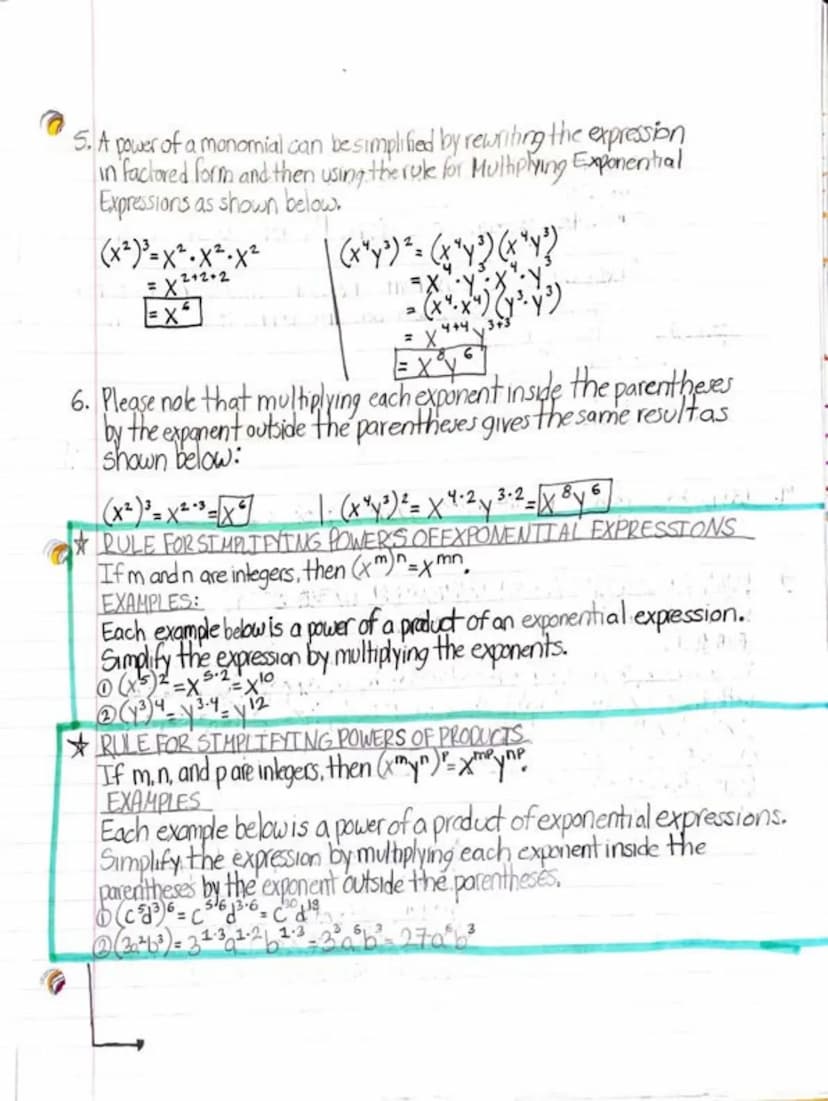 5. A power of a monomial can be simplified by rewriting the expression
in factored form and then using the rule for Multiplying Exponential
Expressions as shown below.
(x²)³=x²·x²·x²
= x²⁺²⁺²
= x⁶
(x⁴y³)²= (x⁴y³)(x⁴y³)
= x⁴·y³·x⁴·y³
= (x⁴·x⁴)(y³·y³)
= x⁴⁺⁴y³⁺³
= x⁸y⁶
6. Please note that multiplying each exponent inside the parentheses
by the exponent outside the parentheses gives the same result as
shown below:
(x²)³=x²·³=x⁶ | (x⁴y³)²=x⁴·²y³·²=x⁸y⁶
☆ RULE FOR SIMPLIFYING POWERS OF EXPONENTIAL EXPRESSIONS
If m and n are integers, then (xᵐ)ⁿ=xᵐⁿ.
EXAMPLES:
Each example below is a power of a product of an exponential expression.
Simplify the expression by multiplying the exponents.
① (x⁵)²=x⁵·²=x¹⁰
② (y³)⁴=y³·⁴=y¹²
☆ RULE FOR SIMPLIFYING POWERS OF PRODUCTS
If m, n, and p are integers, then (xᵐyⁿ)ᵖ=xᵐᵖyⁿᵖ.
EXAMPLES
Each example below is a power of a product of exponential expressions.
Simplify the expression by multiplying each exponent inside the
parentheses by the exponent outside the parentheses.
① (c⁵d³)⁶=c⁵·⁶d³·⁶=c³⁰d¹⁸
② (3a²b³)=3¹·³a¹·²b¹·³=3³a⁶b³=27a⁶b³